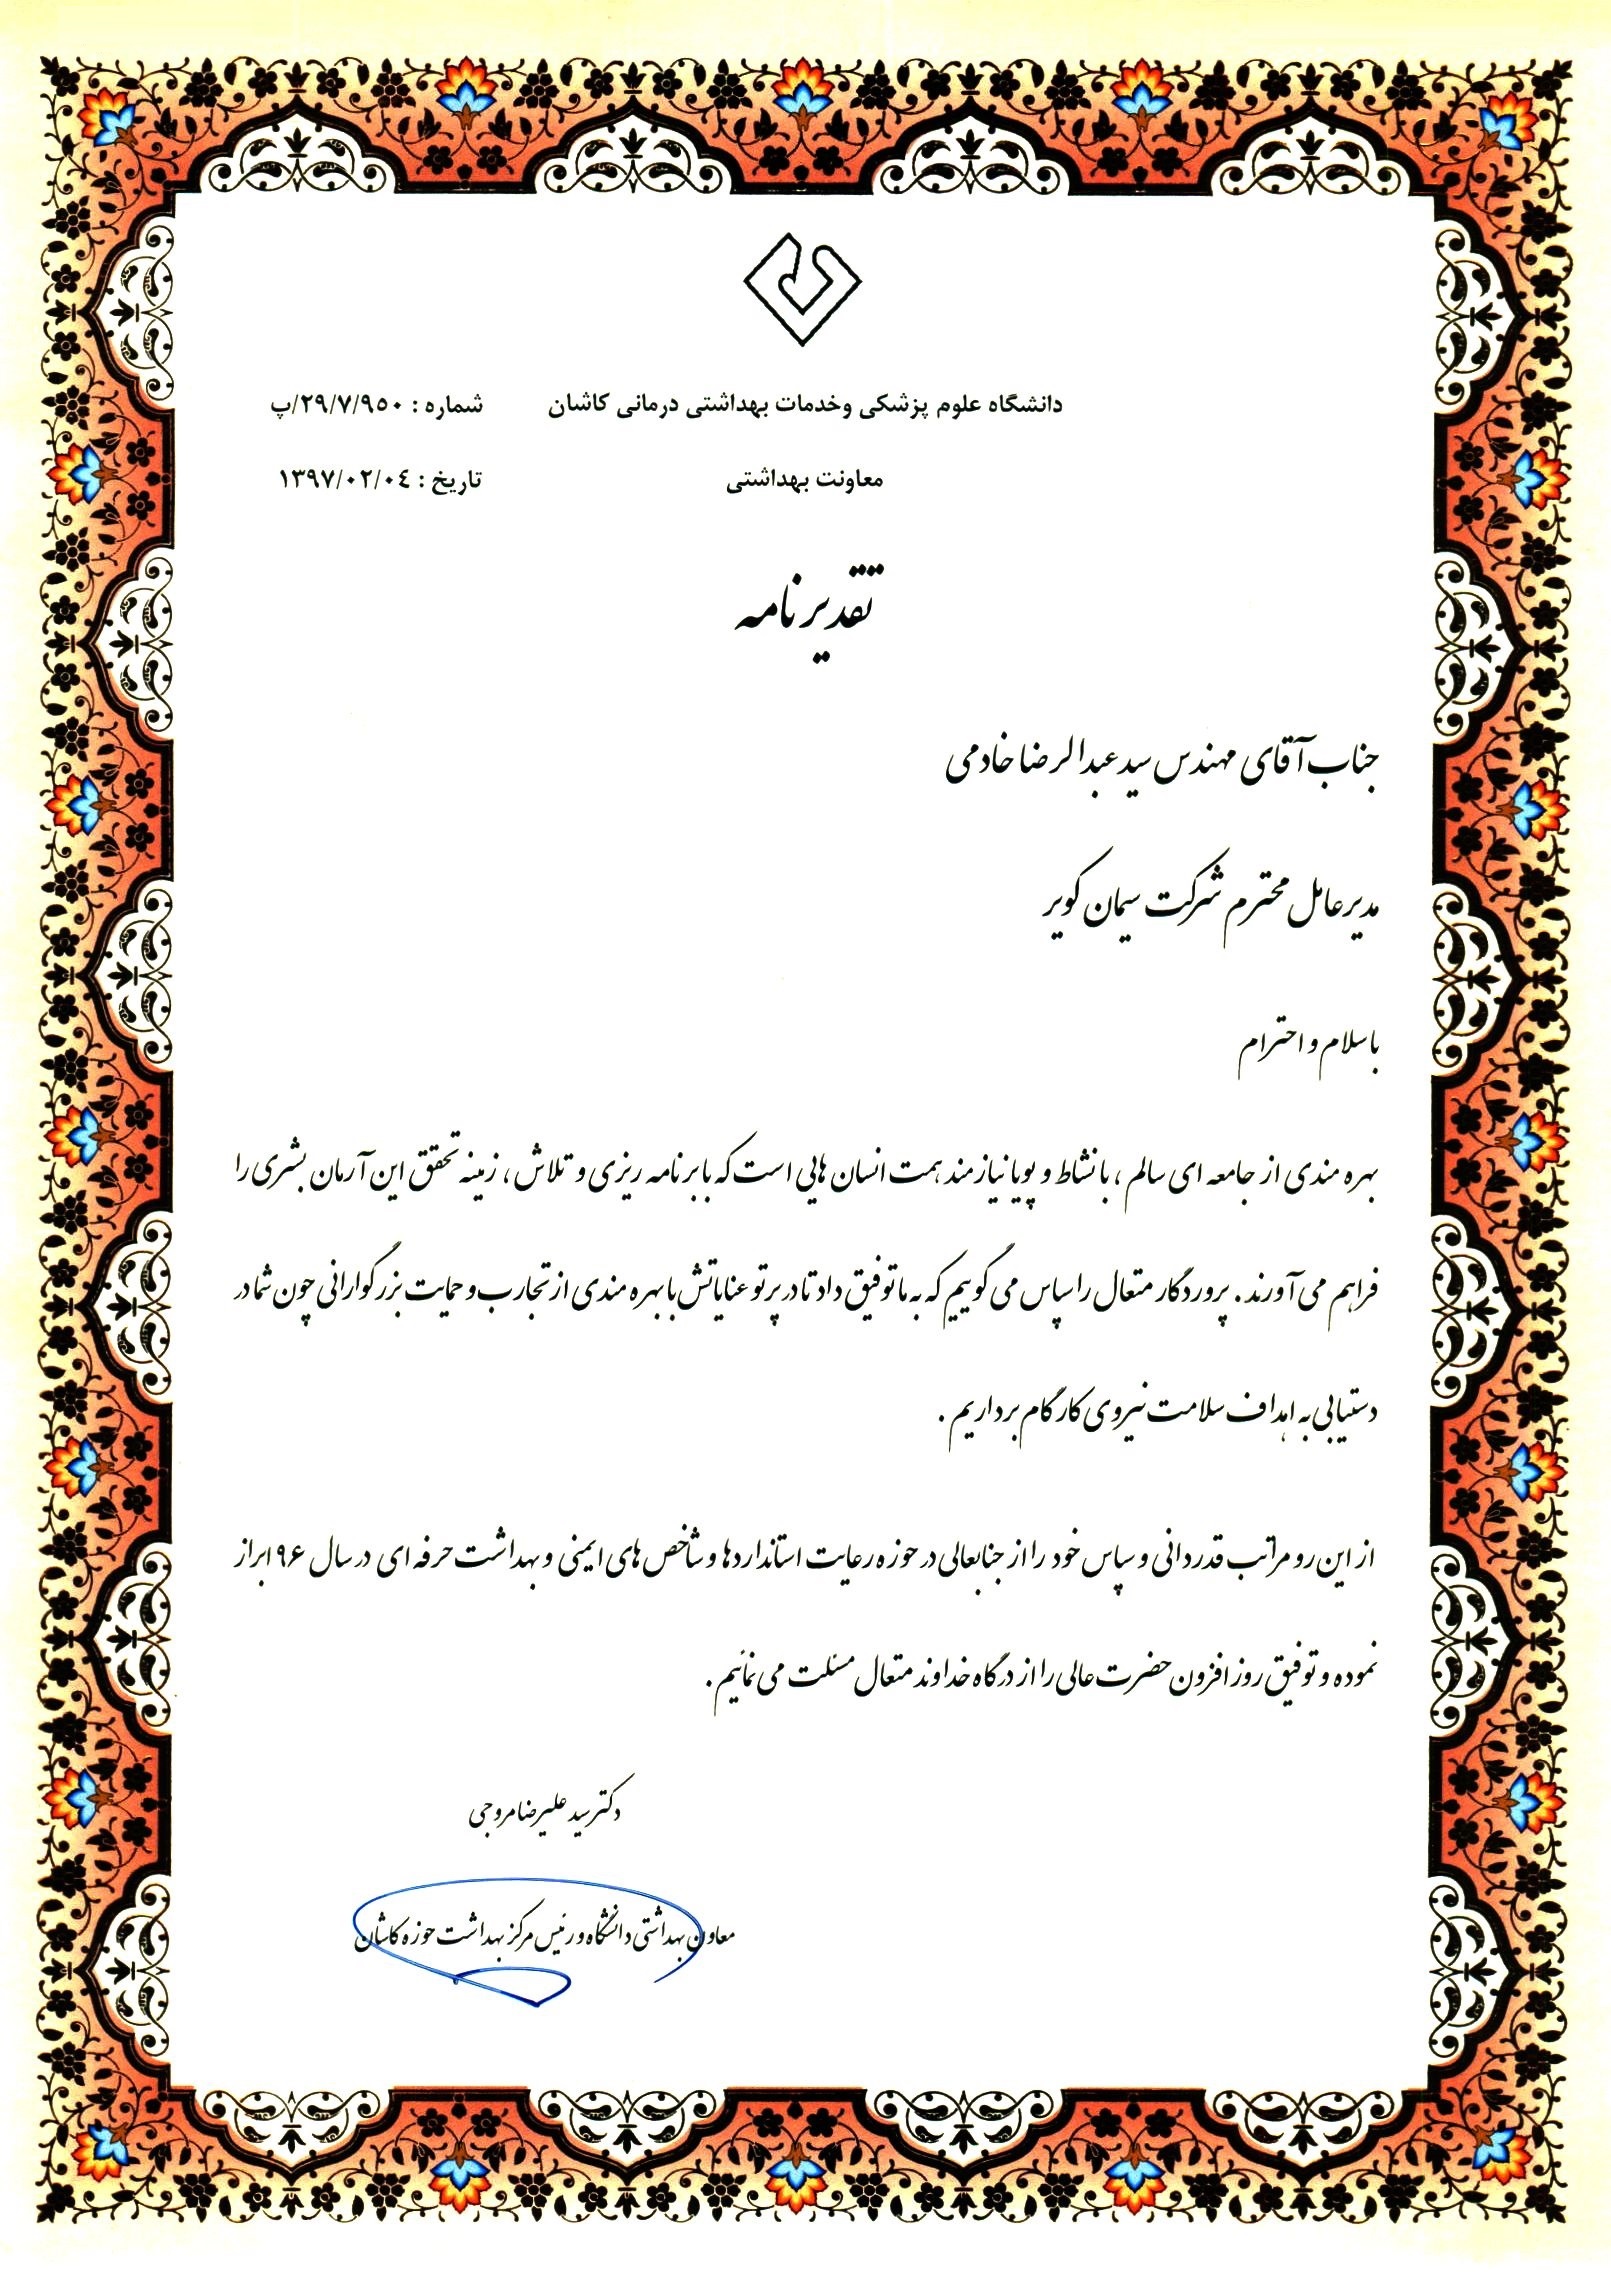 دانشگاه علوم پزشکی وخدمات بهداشتی درمانی کاشان
شماره : ۲۹/۷/۹۵۰/پ
معاونت بهداشتی
تاریخ : ۱۳۹۷/۰۲/۰٤
تقدیرنامه
جناب آقای مهندس سید عبدالرضا خادمی
مدیرعامل محترم شرکت سیمان کویر
با سلام و احترام
بهره مندی از جامعه ای سالم ، با نشاط و پویا نیازمند همت انسان هایی است که با برنامه ریزی و تلاش ، زمینه تحقق این آرمان بشری را
فراهم می آورند . پروردگار متعال را سپاس می گوییم که به ما توفیق داد تا در پرتو عنایاتش با بهره مندی از تجارب و حمایت بزرگوارانی چون شما در
دستیابی به اهداف سلامت نیروی کار گام برداریم .
از این رو مراتب قدردانی و سپاس خود را از جنابعالی در حوزه رعایت استانداردها و شاخص های ایمنی و بهداشت حرفه ای در سال ۹۶ ابراز
نموده و توفیق روز افزون حضرت عالی را از درگاه خداوند متعال مسئلت می نمائیم .
دکتر سید علیرضا مروجی
معاون بهداشتی دانشگاه و رئیس مرکز بهداشت حوزه کاشان